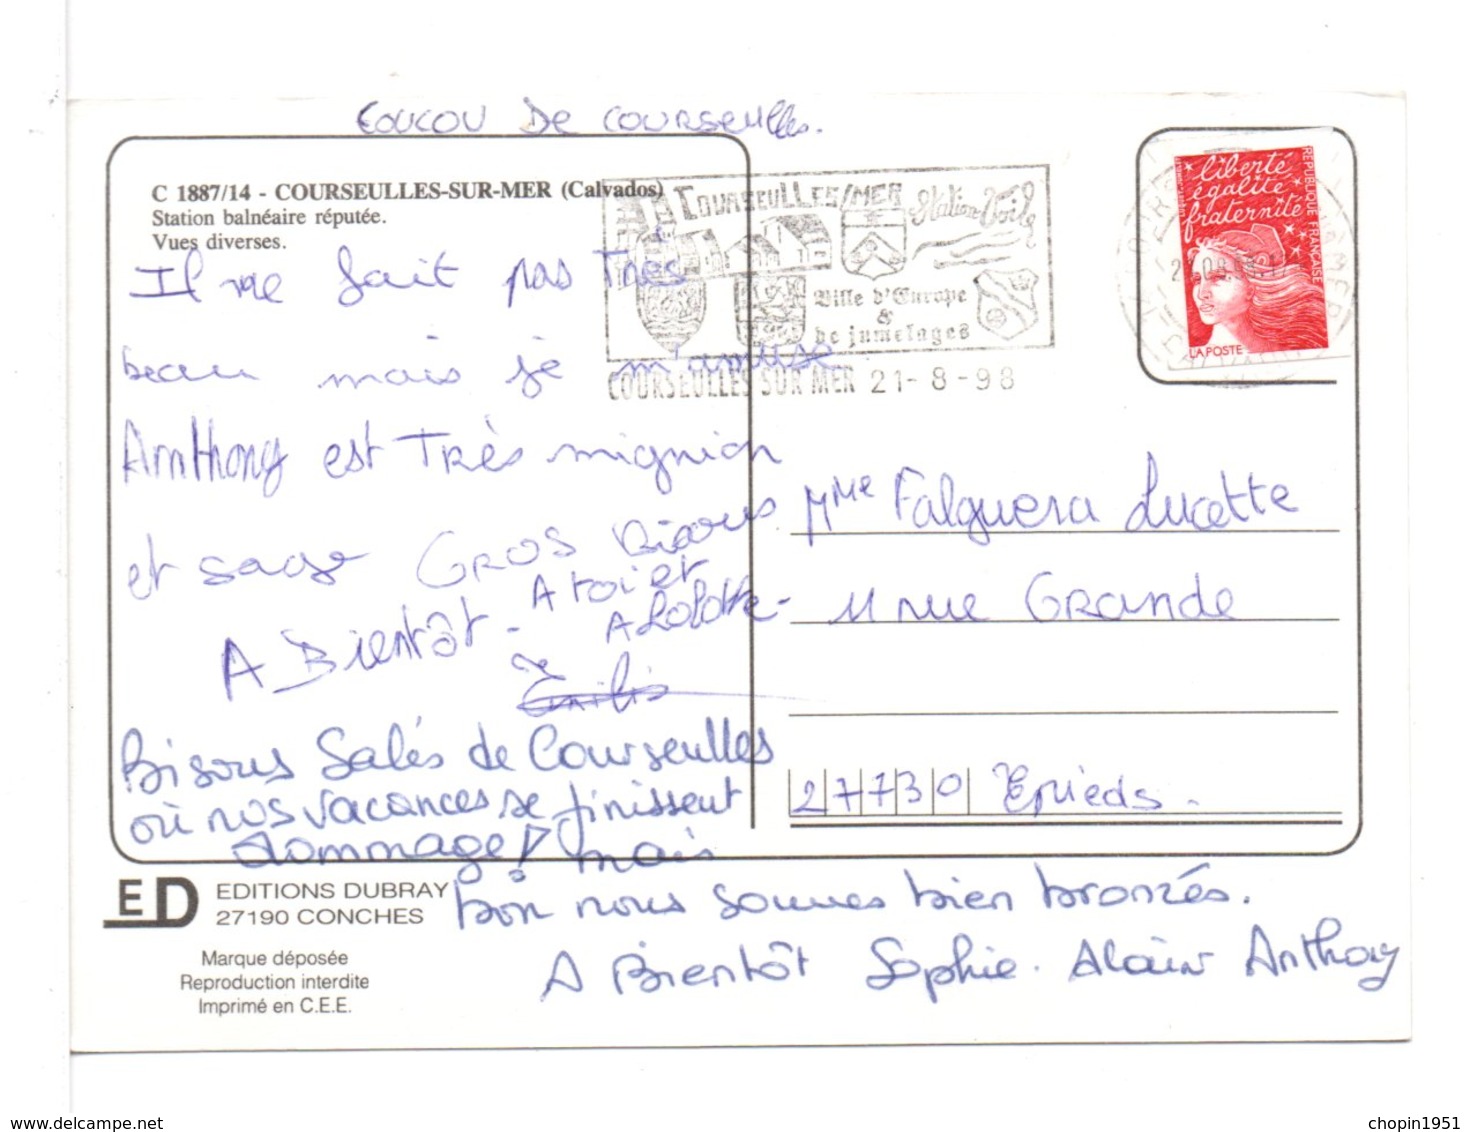 COUCOU DE COURSEULLES.
C 1887/14 - COURSEULLES-SUR-MER (Calvados)
Station balnéaire réputée.
Vues diverses.
Il ne fait pas Très
beau mais je m'amuse
Anthony est Très mignion
et sage GROS Bisous
A Bientôt - A toi et
A Lolotte -
de
Emilie
Bisous Salés de Courseulles
où nos vacances se finissent
dommage! mais
bon nous sommes bien bronzés.
A Bientôt Sophie. Alain Anthony
COURSEULLES/MER
Station Voile
Ville d'Europe
&
de jumelages
COURSEULLES SUR MER 21-8-98
liberté
égalité
fraternité
REPUBLIQUE FRANÇAISE
LA POSTE
Mme Falguera Lucette
11 rue GRANDE
27730 Epieds.
ED
EDITIONS DUBRAY
27190 CONCHES
Marque déposée
Reproduction interdite
Imprimé en C.E.E.
www.delcampe.net
chopin1951